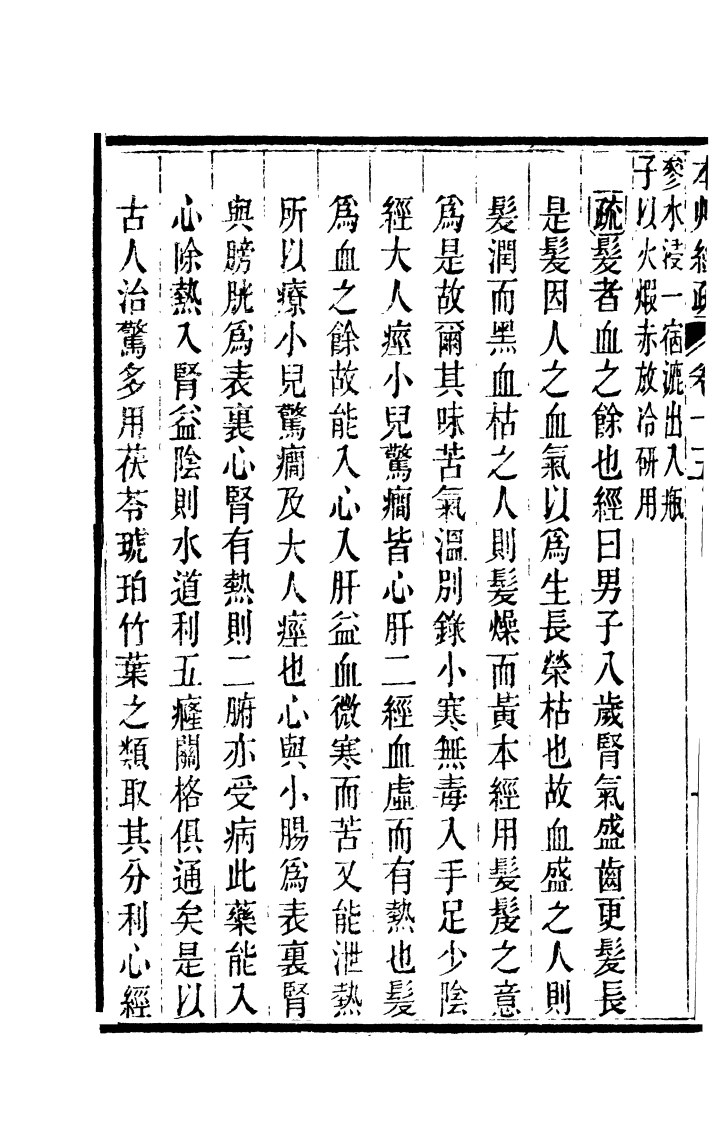 本草經疏 卷十五
蔘水浸一宿漉出入瓶
子以火煅赤放冷研用
疏髮者血之餘也經曰男子八歲腎氣盛齒更髮長
是髮因人之血氣以爲生長榮枯也故血盛之人則
髮潤而黑血枯之人則髮燥而黃本經用髮髲之意
爲是故爾其味苦氣溫別錄小寒無毒入手足少陰
經大人痙小兒驚癎皆心肝二經血虛而有熱也髮
爲血之餘故能入心入肝益血微寒而苦又能泄熱
所以療小兒驚癎及大人痙也心與小腸爲表裏腎
與膀胱爲表裏心腎有熱則二腑亦受病此藥能入
心除熱入腎益陰則水道利五癃關格俱通矣是以
古人治驚多用茯苓琥珀竹葉之類取其分利心經